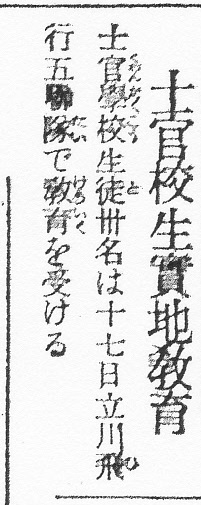 士官校生實地敎育
士官學校生徒卅名は十七日立川飛
行五聯隊で敎育を受ける